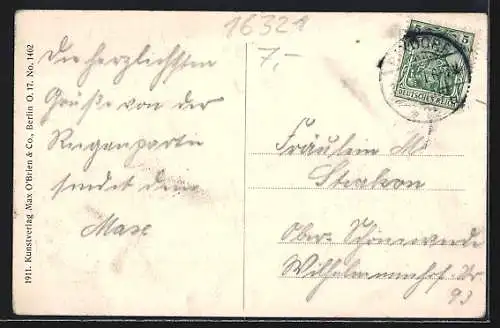 16321
7,-
Die herzlichsten
Grüße von der
Regenpartie
sendet dein
Max
1911. Kunstverlag Max O'Brien & Co., Berlin O. 17. No. 1462
5
DEUTSCHES REICH
Fräulein M
Ober-Schöneweide
Wilhelminenhof-Str
93